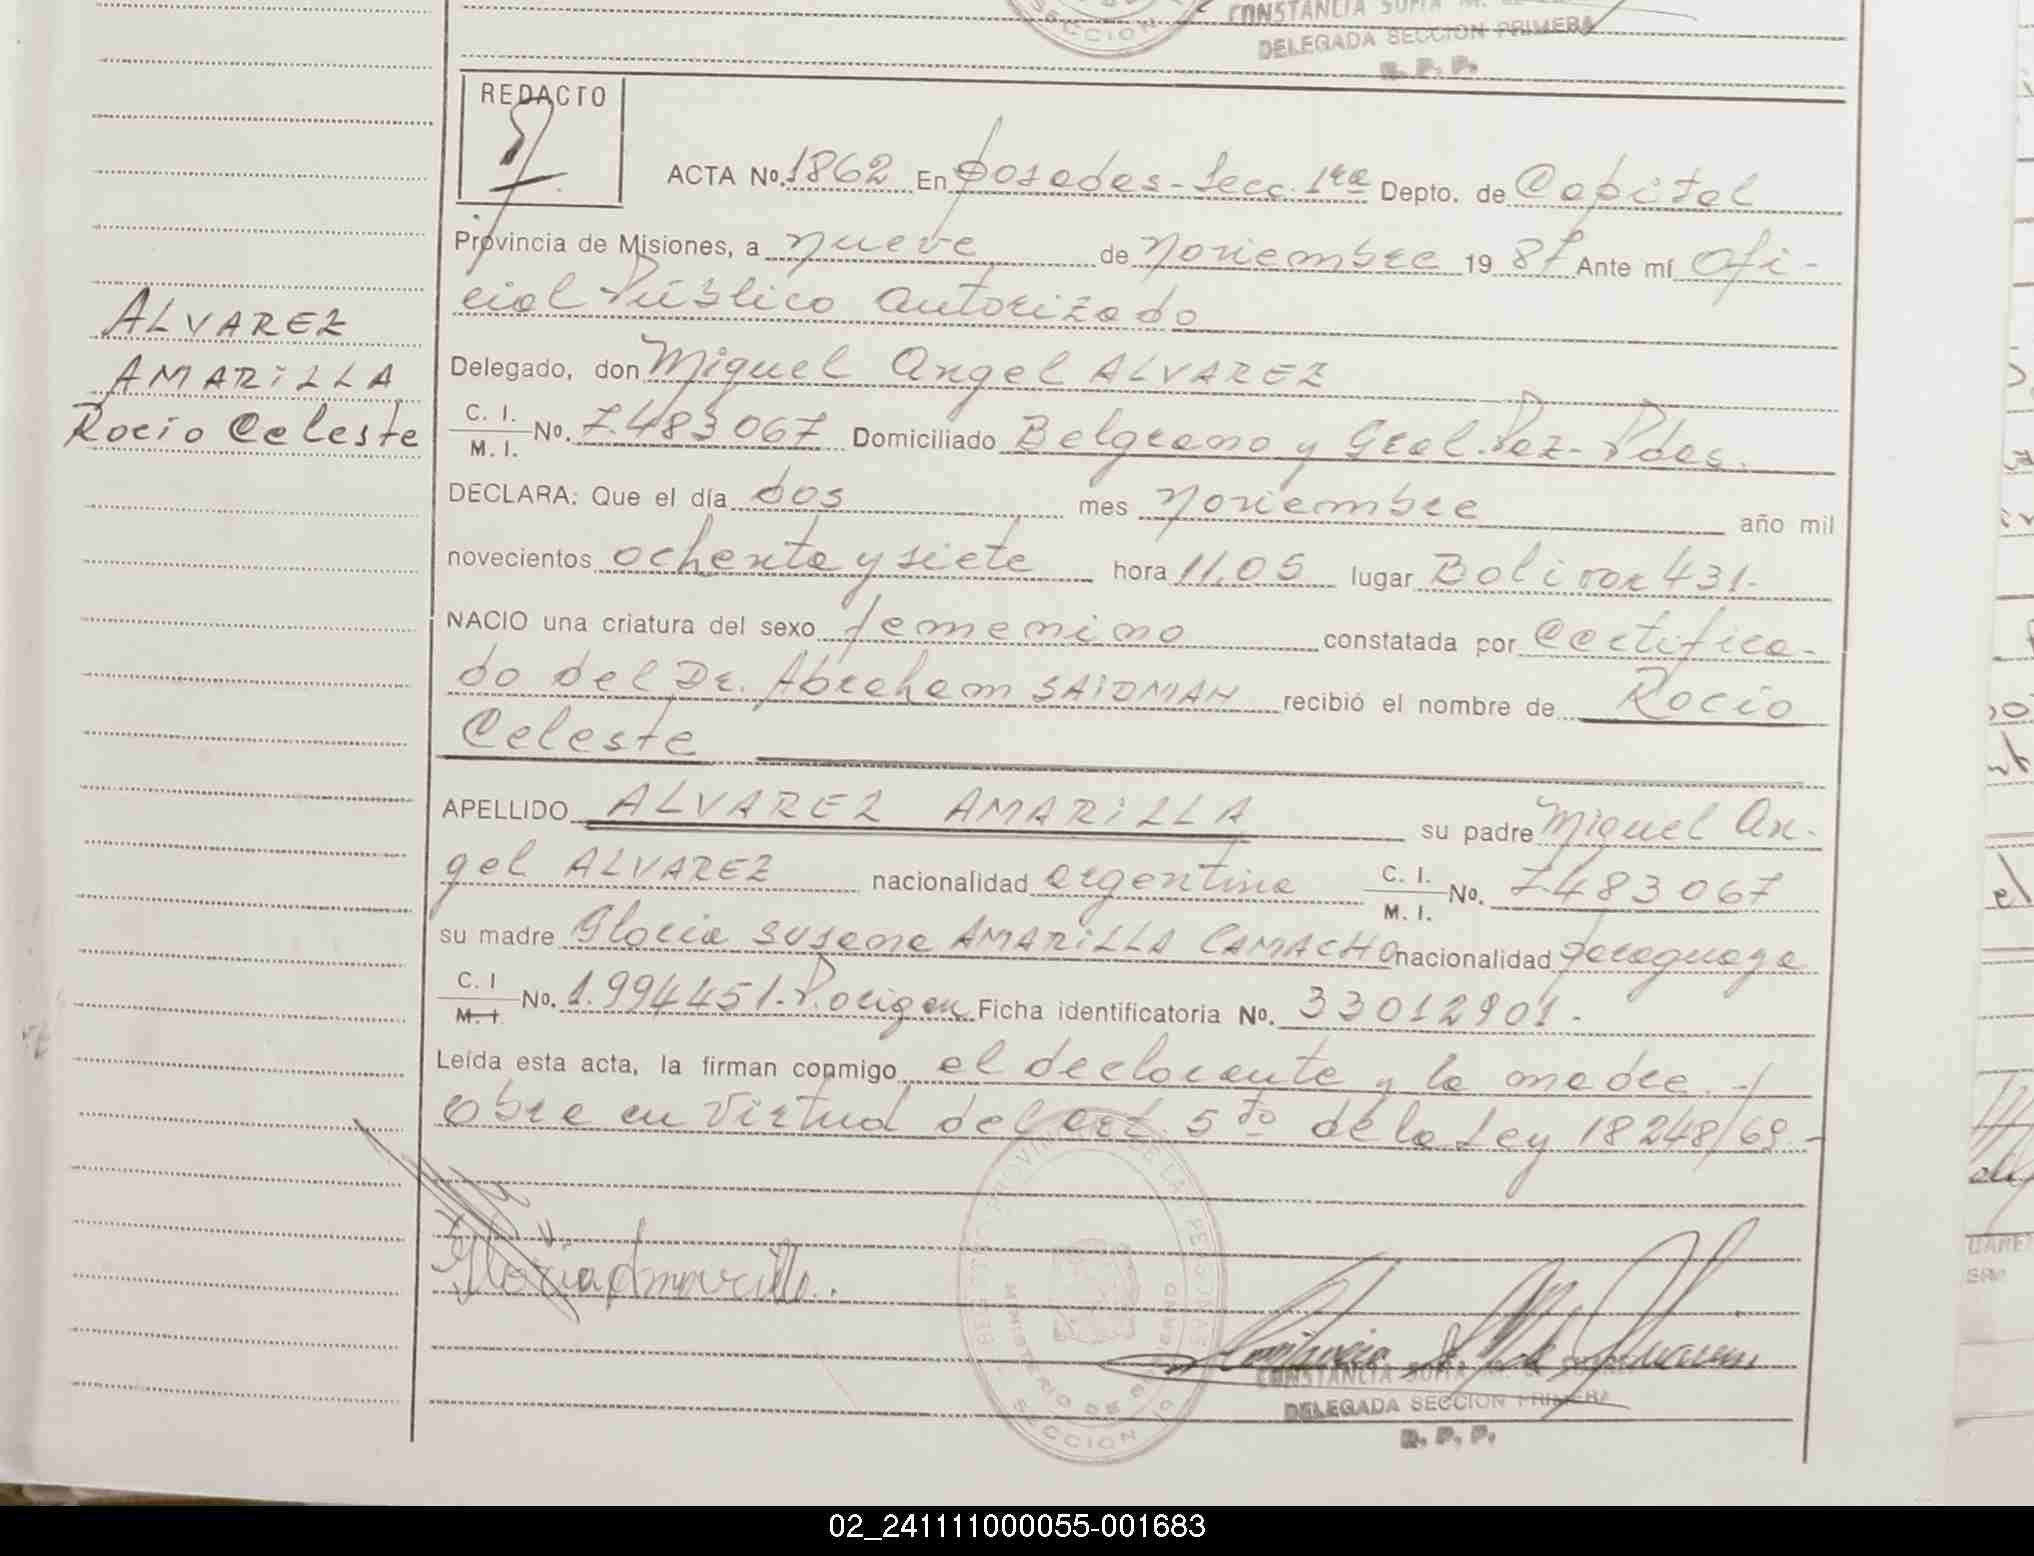 SECCION
CONSTANCIA SOFIA M. DE
DELEGADA SECCION PRIMERA
R. P. P.
REDACTO
ACTA Nº. 1862 En Posadas - Secc. 1ra Depto. de Capital
Provincia de Misiones, a nueve de Noviembre 19 87 Ante mí Ofi-
cial Público Autorizado
ALVAREZ
AMARILLA
Rocio Celeste
Delegado, don Miguel Angel ALVAREZ
C. I.
M. I. Nº. 7.483 067 Domiciliado Belgrano y Gral. Paz - Pdas.
DECLARA: Que el día dos mes Noviembre año mil
novecientos ochenta y siete hora 11,05 lugar Bolivar 431-
NACIO una criatura del sexo femenino constatada por Certifica-
do del Dr. Abraham SAIDMAN recibió el nombre de Rocio
Celeste
APELLIDO ALVAREZ AMARILLA su padre Miguel An-
gel ALVAREZ nacionalidad argentina C. I.
M. I. Nº. 7.483 067
su madre Gloria Susana AMARILLA CAMACHO nacionalidad paraguaya
C. I
M. I Nº. 1.994451.P.origen Ficha identificatoria Nº. 33012901-
Leída esta acta, la firman conmigo el declarante y la madre.-/
Obra en virtud del art. 5to de la Ley 18248/69.-
Gloria Amarilla
REGISTRO PROVINCIAL DE LAS PERSONAS
MINISTERIO DE GOBIERNO
SECCION
CONSTANCIA SOFIA M. DE
DELEGADA SECCION PRIMERA
R. P. P.
02_241111000055-001683